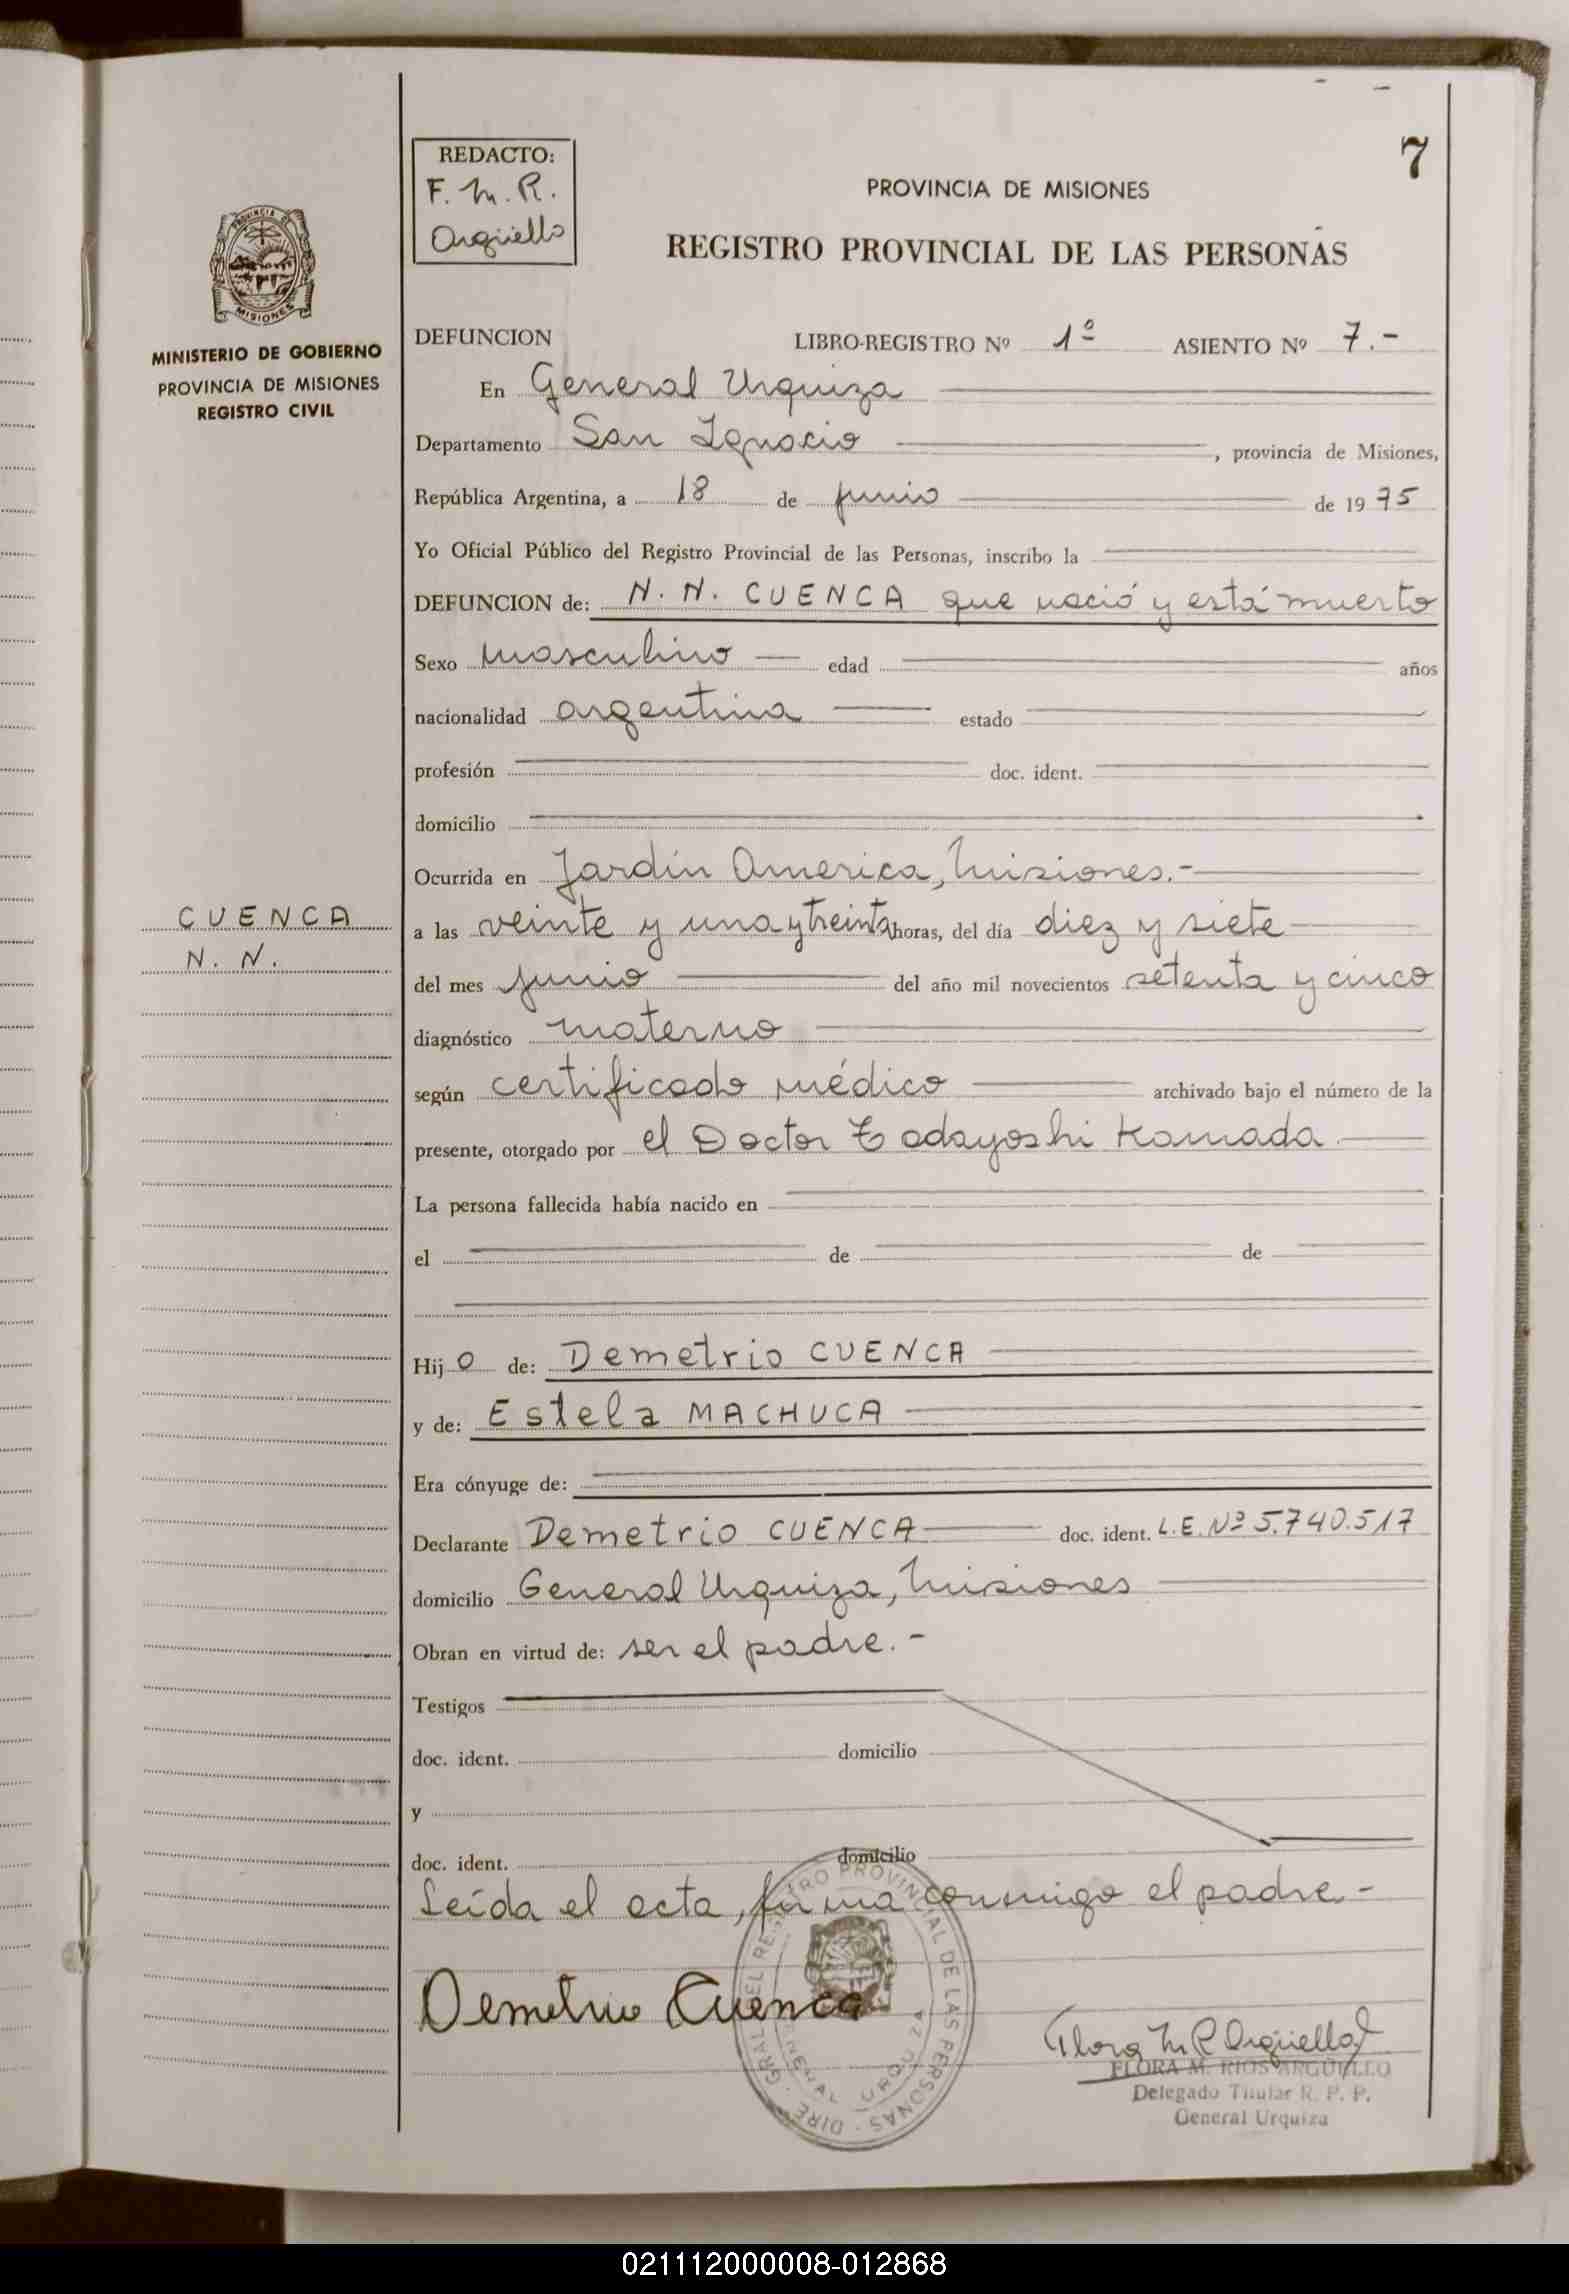 7
REDACTO:
F. M. R.
Argüello
PROVINCIA DE MISIONES
REGISTRO PROVINCIAL DE LAS PERSONAS
PROVINCIA DE
MISIONES
MINISTERIO DE GOBIERNO
PROVINCIA DE MISIONES
REGISTRO CIVIL
DEFUNCION LIBRO-REGISTRO Nº 1º ASIENTO Nº 7.-
En General Urquiza
Departamento San Ignacio , provincia de Misiones,
República Argentina, a 18 de junio de 1975
Yo Oficial Público del Registro Provincial de las Personas, inscribo la
DEFUNCION de: N. N. CUENCA que nació y está muerto
Sexo masculino edad años
nacionalidad argentina estado
profesión doc. ident.
domicilio
Ocurrida en Jardín America, Misiones.-
CUENCA
N. N.
a las veinte y una y treinta horas, del día diez y siete
del mes junio del año mil novecientos setenta y cinco
diagnóstico materno
según certificado médico archivado bajo el número de la
presente, otorgado por el Doctor Tadayoshi Kamada
La persona fallecida había nacido en
el de de
Hijo de: Demetrio CUENCA
y de: Estela MACHUCA
Era cónyuge de:
Declarante Demetrio CUENCA doc. ident. L.E. Nº 5.740.517
domicilio General Urquiza, Misiones
Obran en virtud de: ser el padre.-
Testigos
doc. ident. domicilio
y
doc. ident. domicilio
Leída el acta, firma conmigo el padre.-
Demetrio Cuenca
DIRE. GRAL. DEL REGISTRO PROVINCIAL DE LAS PERSONAS
GENERAL URQUIZA
Flora M R Argüello
FLORA M. RIOS ARGÜELLO
Delegado Titular R. P. P.
General Urquiza
021112000008-012868